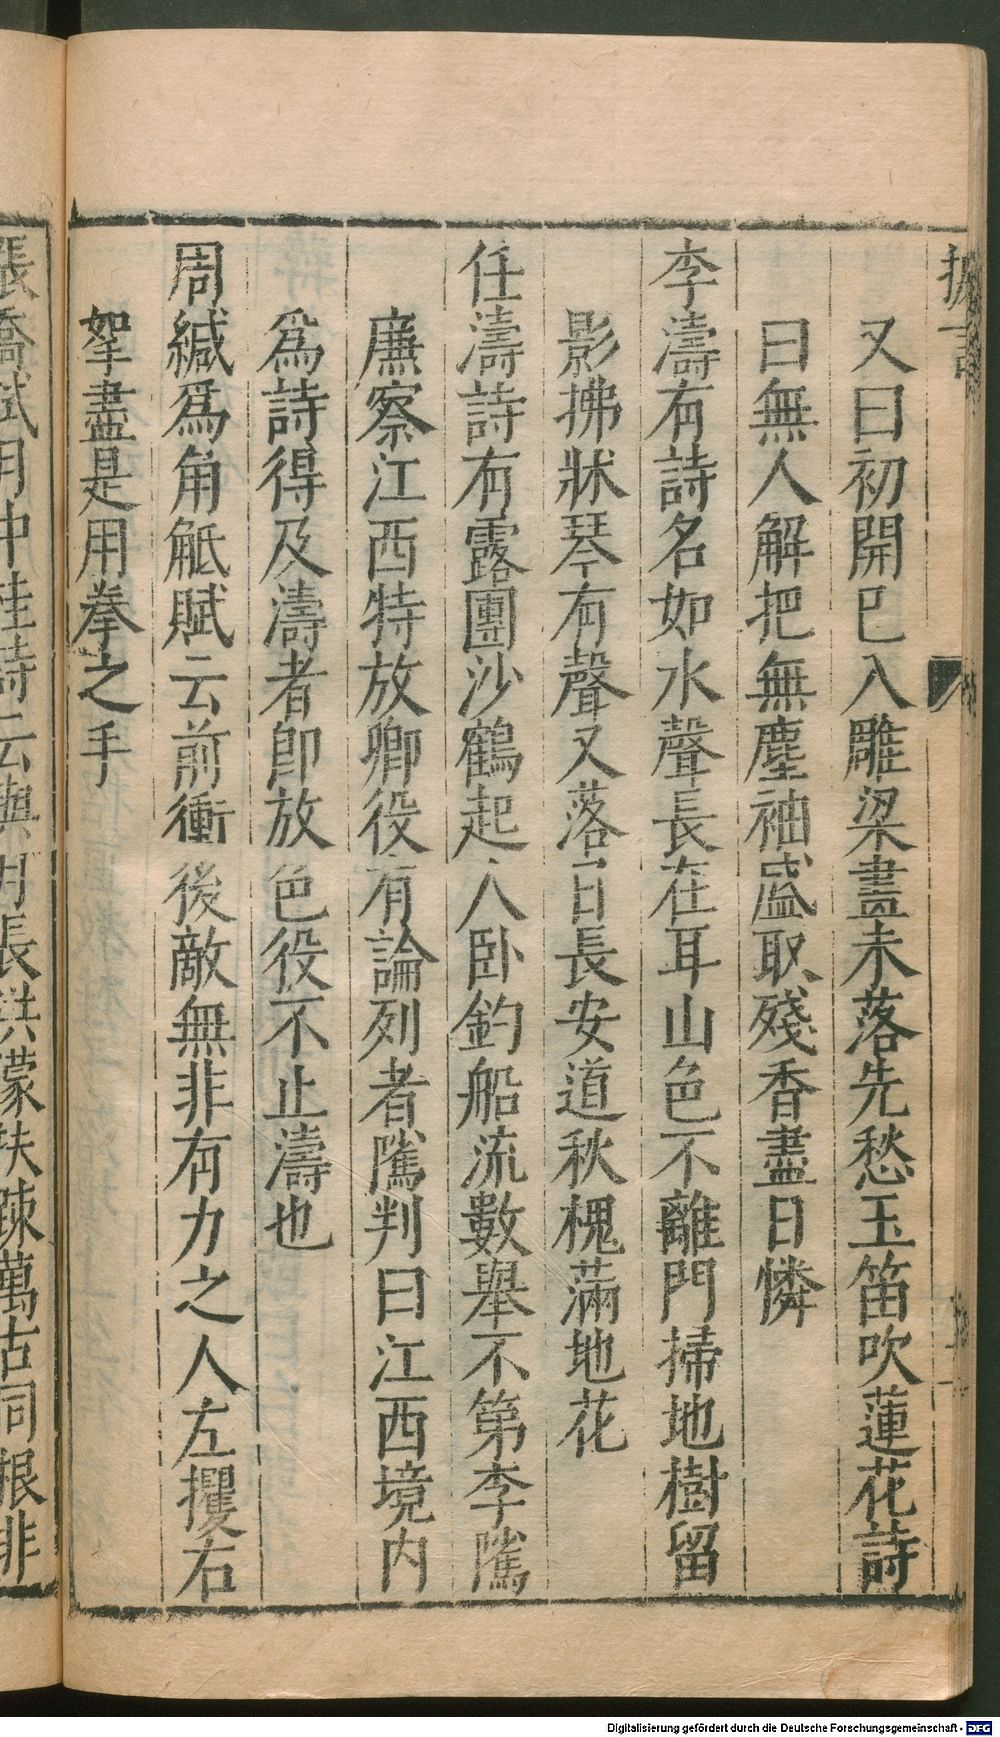 摭言
又曰初開已入雕梁畫未落先愁玉笛吹蓮花詩
曰無人解把無塵袖盛取殘香盡日憐
李濤有詩名如水聲長在耳山色不離門掃地樹留
影拂牀琴有聲又落日長安道秋槐滿地花
任濤詩有露團沙鶴起人卧釣船流數舉不第李隲
廉察江西特放鄉役有論列者隲判曰江西境内
爲詩得及濤者卽放色役不止濤也
周緘爲角觝賦云前衝後敵無非有力之人左攫右
拏盡是用拳之手
張喬試月中桂詩云與月長洪濛扶踈萬古同根非
Digitalisierung gefördert durch die Deutsche Forschungsgemeinschaft - DFG